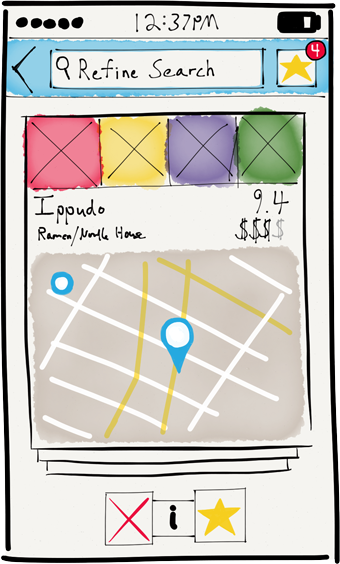 12:37PM
Refine Search
4
Ippudo
9.4
Ramen/Noodle House
$$$$
i